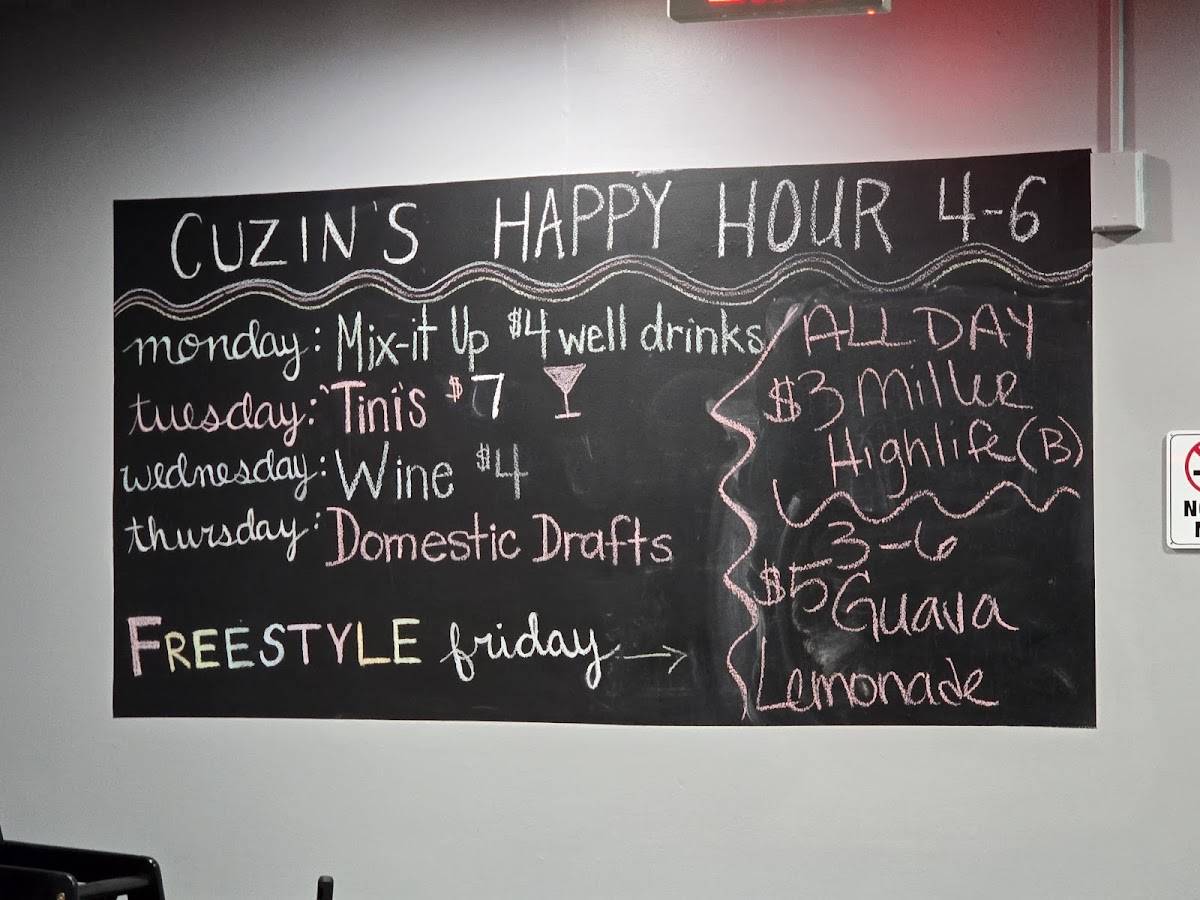 CUZIN'S HAPPY HOUR 4-6
monday: Mix-it Up $4 well drinks
tuesday: Tini's $7
wednesday: Wine $4
thursday: Domestic Drafts
FREESTYLE friday →
ALL DAY
$3 Miller
Highlife (B)
3-6
$5 Guava
Lemonade